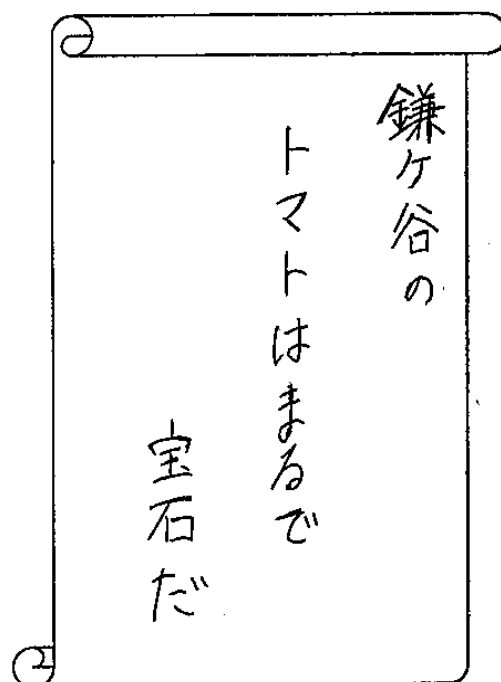 鎌ケ谷の
トマトはまるで
宝石だ